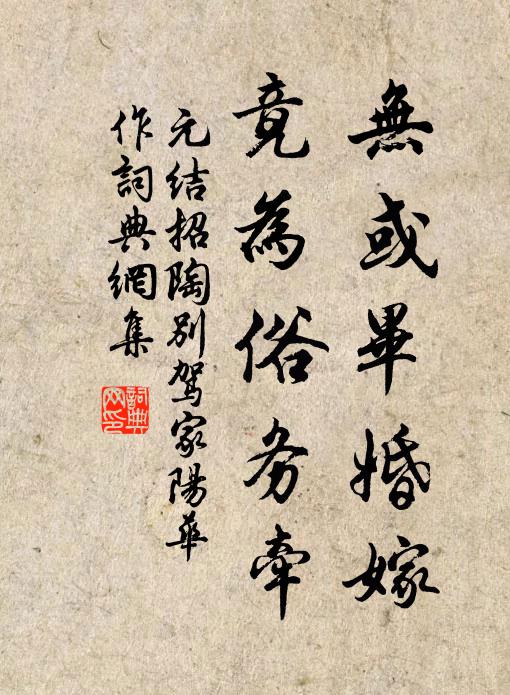 無或畢婚嫁
竟為俗务牵
元结招陶别驾家陽華
作詞典網集
詞典网印